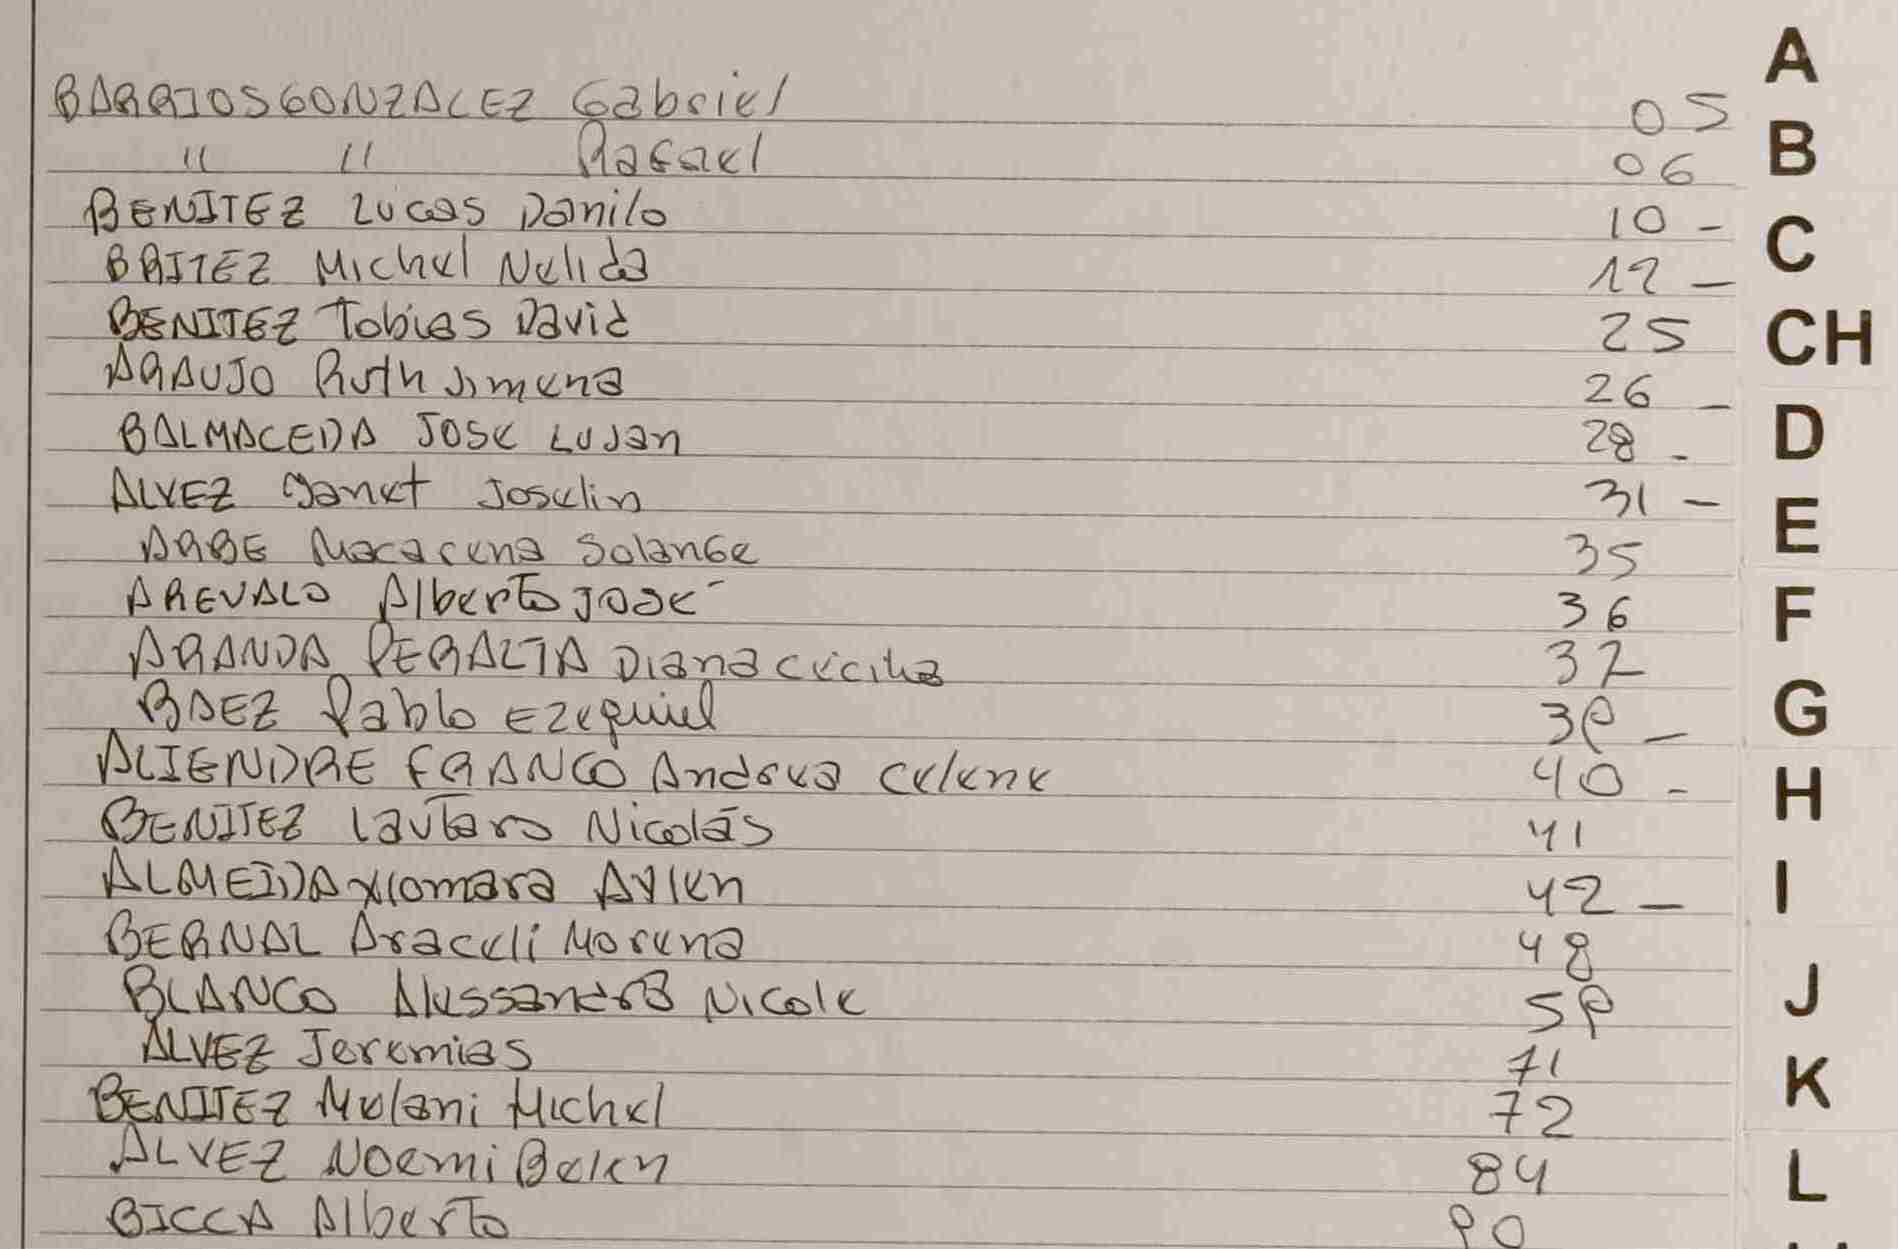 BARRIOS GONZALEZ Gabriel 05
" " Rafael 06
BENITEZ Lucas Danilo 10 -
BRITEZ Michel Nelida 12 -
BENITEZ Tobias David 25
ARAUJO Ruth Jimena 26 -
BALMACEDA JOSE LUJan 28 -
ALVEZ Yanet Joselin 31 -
ARBE Macarena Solange 35
AREVALO Alberto José 36
ARANDA PERALTA Diana Cecilia 37
BAEZ Pablo Ezequiel 39 -
ALIENDRE FRANCO Andrea Celene 40 -
BENITEZ Lautaro Nicolás 41
ALMEIDA Xiomara Aylen 42 -
BERNAL Araceli Morena 48
BLANCO Alessandra Nicole 59
ALVEZ Jeremias 71
BENITEZ Melani Michel 72
ALVEZ Noemi Belen 84
BICCA Alberto 90
A
B
C
CH
D
E
F
G
H
I
J
K
L